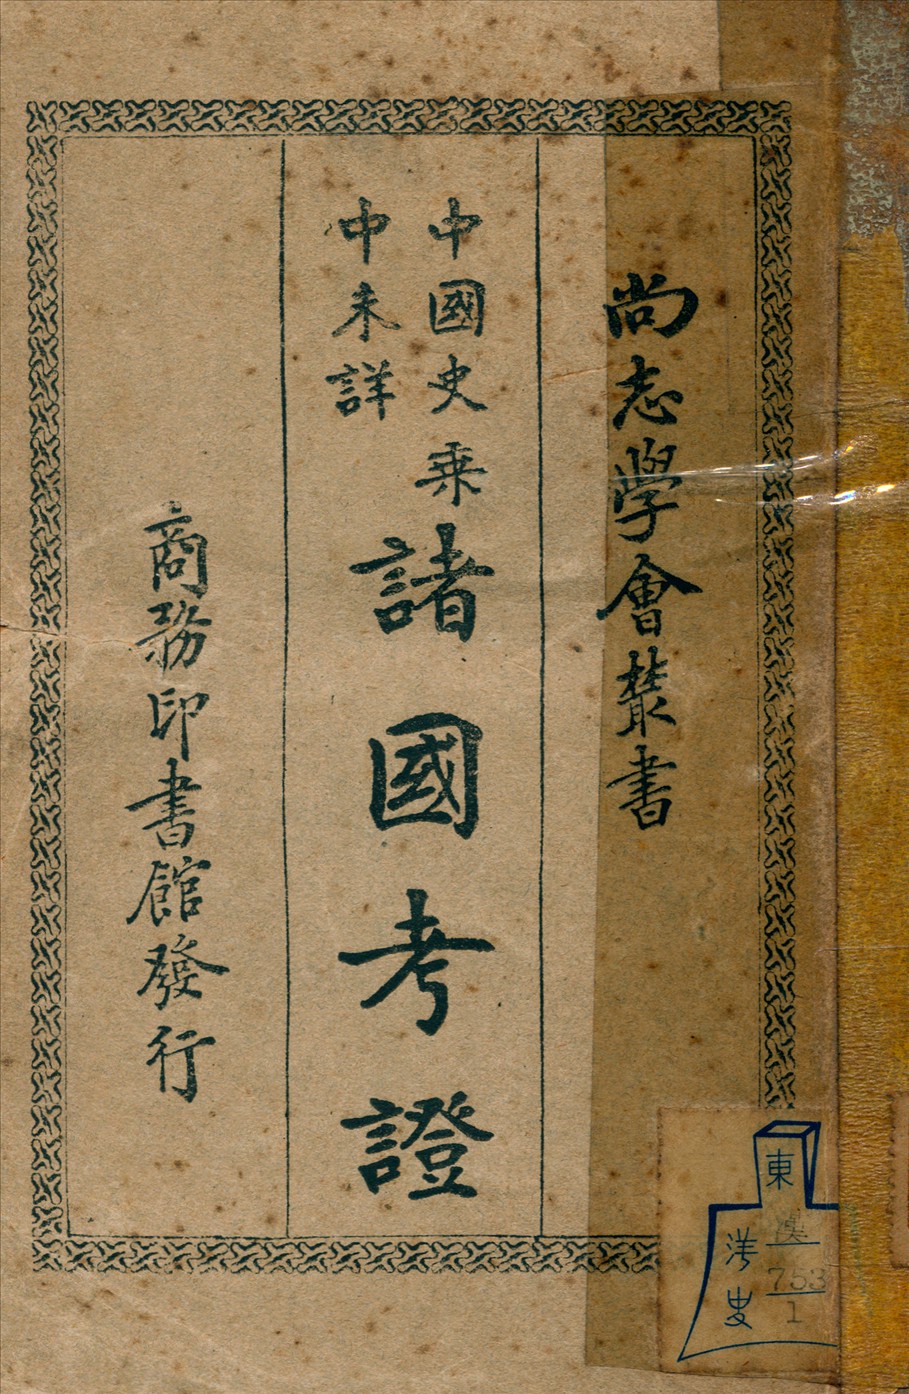 尚志學會叢書
中國史乘
中未詳
諸國考證
商務印書館發行
東
洋史
753
1